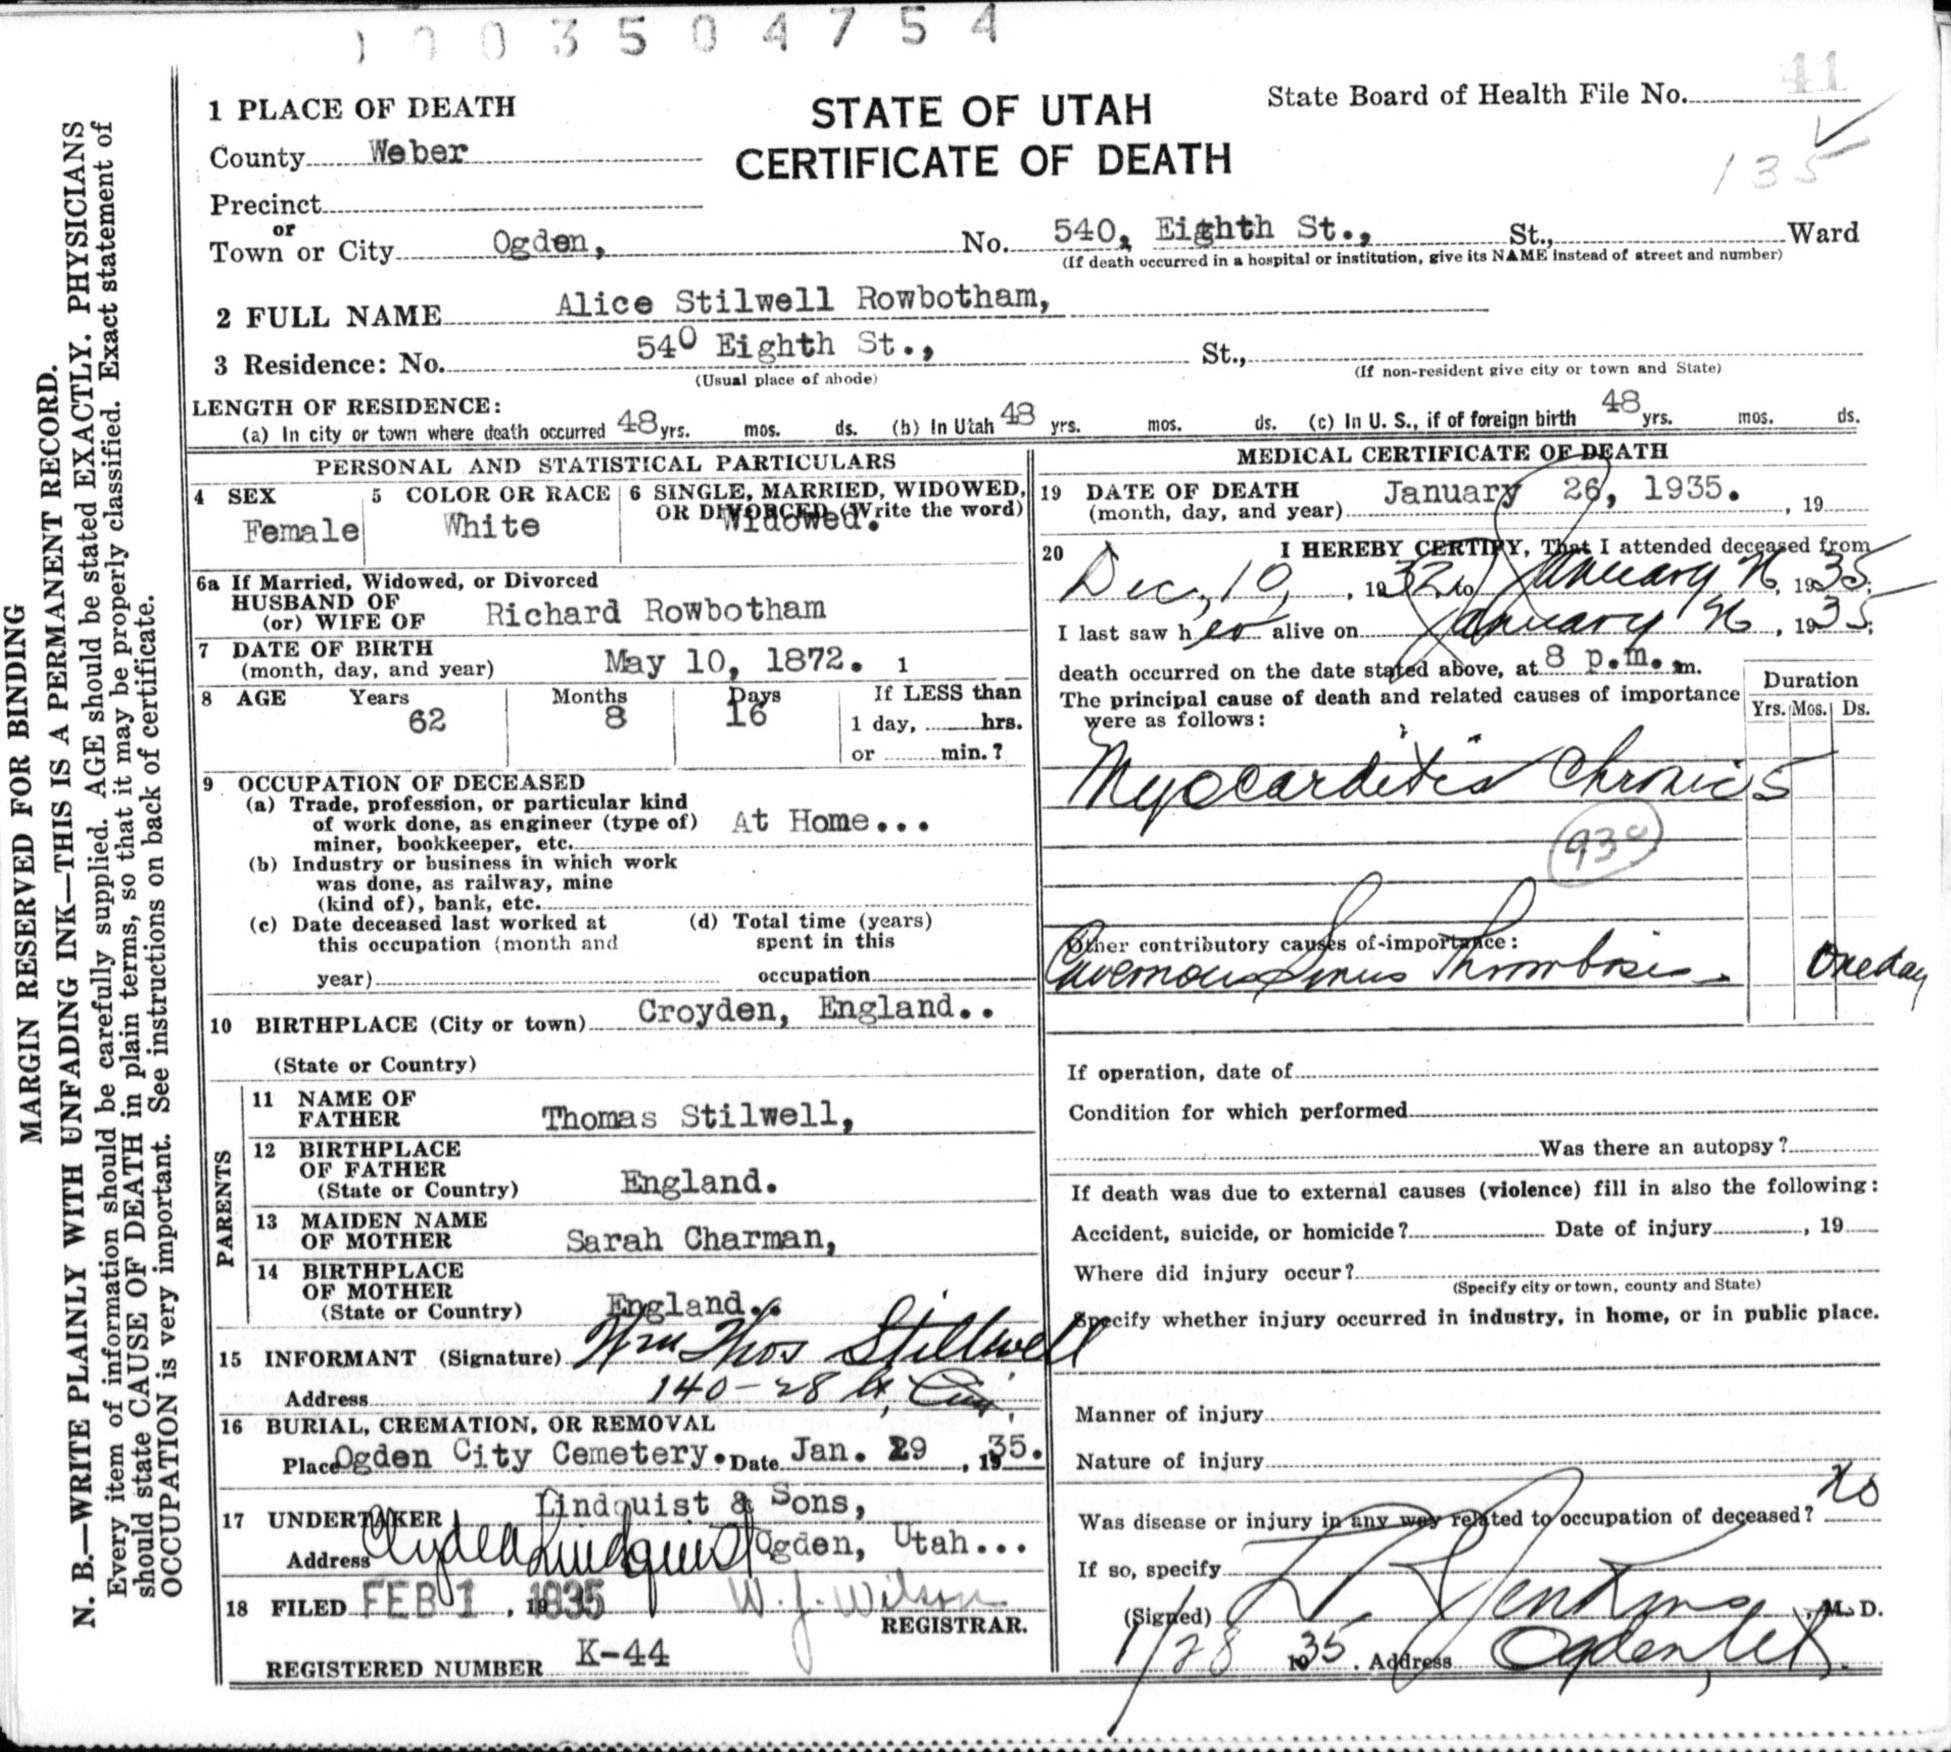 1003504754
41
1 PLACE OF DEATH
STATE OF UTAH
CERTIFICATE OF DEATH
State Board of Health File No.
135
County Weber
Precinct
or
Town or City Ogden, No. 540, Eighth St., St., Ward
(If death occurred in a hospital or institution, give its NAME instead of street and number)
2 FULL NAME Alice Stilwell Rowbotham,
3 Residence: No. 540 Eighth St., St.,
(Usual place of abode) (If non-resident give city or town and State)
LENGTH OF RESIDENCE:
(a) In city or town where death occurred 48 yrs. mos. ds. (b) In Utah 48 yrs. mos. ds. (c) In U. S., if of foreign birth 48 yrs. mos. ds.
PERSONAL AND STATISTICAL PARTICULARS
4 SEX
Female
5 COLOR OR RACE
White
6 SINGLE, MARRIED, WIDOWED,
OR DIVORCED (Write the word)
Widowed.
6a If Married, Widowed, or Divorced
HUSBAND OF
(or) WIFE OF Richard Rowbotham
7 DATE OF BIRTH
(month, day, and year) May 10, 1872. 1
8 AGE Years Months Days If LESS than
62 8 16 1 day, hrs.
or min.?
9 OCCUPATION OF DECEASED
(a) Trade, profession, or particular kind
of work done, as engineer (type of) At Home...
miner, bookkeeper, etc.
(b) Industry or business in which work
was done, as railway, mine
(kind of), bank, etc.
(c) Date deceased last worked at (d) Total time (years)
this occupation (month and spent in this
year) occupation
10 BIRTHPLACE (City or town) Croyden, England..
(State or Country)
PARENTS
11 NAME OF
FATHER Thomas Stilwell,
12 BIRTHPLACE
OF FATHER
(State or Country) England.
13 MAIDEN NAME
OF MOTHER Sarah Charman,
14 BIRTHPLACE
OF MOTHER
(State or Country) England..
15 INFORMANT (Signature) Wm Thos Stillwell
Address 140-28 St,
16 BURIAL, CREMATION, OR REMOVAL
Place Ogden City Cemetery. Date Jan. 29, 1935.
17 UNDERTAKER Lindquist & Sons,
Address Clyde Lindquist Ogden, Utah...
18 FILED FEB 1, 1935 W. J. Wilson
REGISTRAR.
REGISTERED NUMBER K-44
MEDICAL CERTIFICATE OF DEATH
19 DATE OF DEATH January 26, 1935.
(month, day, and year) , 19
20 I HEREBY CERTIFY, That I attended deceased from
Dec, 10, , 1932, to January 26, 1935;
I last saw her alive on January 26, 1935;
death occurred on the date stated above, at 8 p.m. m.
The principal cause of death and related causes of importance
were as follows:
Duration
Yrs. Mos. Ds.
Myocarditis Chronic 5
93c
Other contributory causes of importance:
Cavernous Sinus Thrombosis One day
If operation, date of
Condition for which performed
Was there an autopsy?
If death was due to external causes (violence) fill in also the following:
Accident, suicide, or homicide? Date of injury , 19
Where did injury occur?
(Specify city or town, county and State)
Specify whether injury occurred in industry, in home, or in public place.
Manner of injury
Nature of injury
Was disease or injury in any way related to occupation of deceased? No
If so, specify
(Signed) Jenkins, M. D.
1/28 1935. Address Ogden, Ut.
MARGIN RESERVED FOR BINDING
N. B.—WRITE PLAINLY WITH UNFADING INK—THIS IS A PERMANENT RECORD.
Every item of information should be carefully supplied. AGE should be stated EXACTLY. PHYSICIANS
should state CAUSE OF DEATH in plain terms, so that it may be properly classified. Exact statement of
OCCUPATION is very important. See instructions on back of certificate.